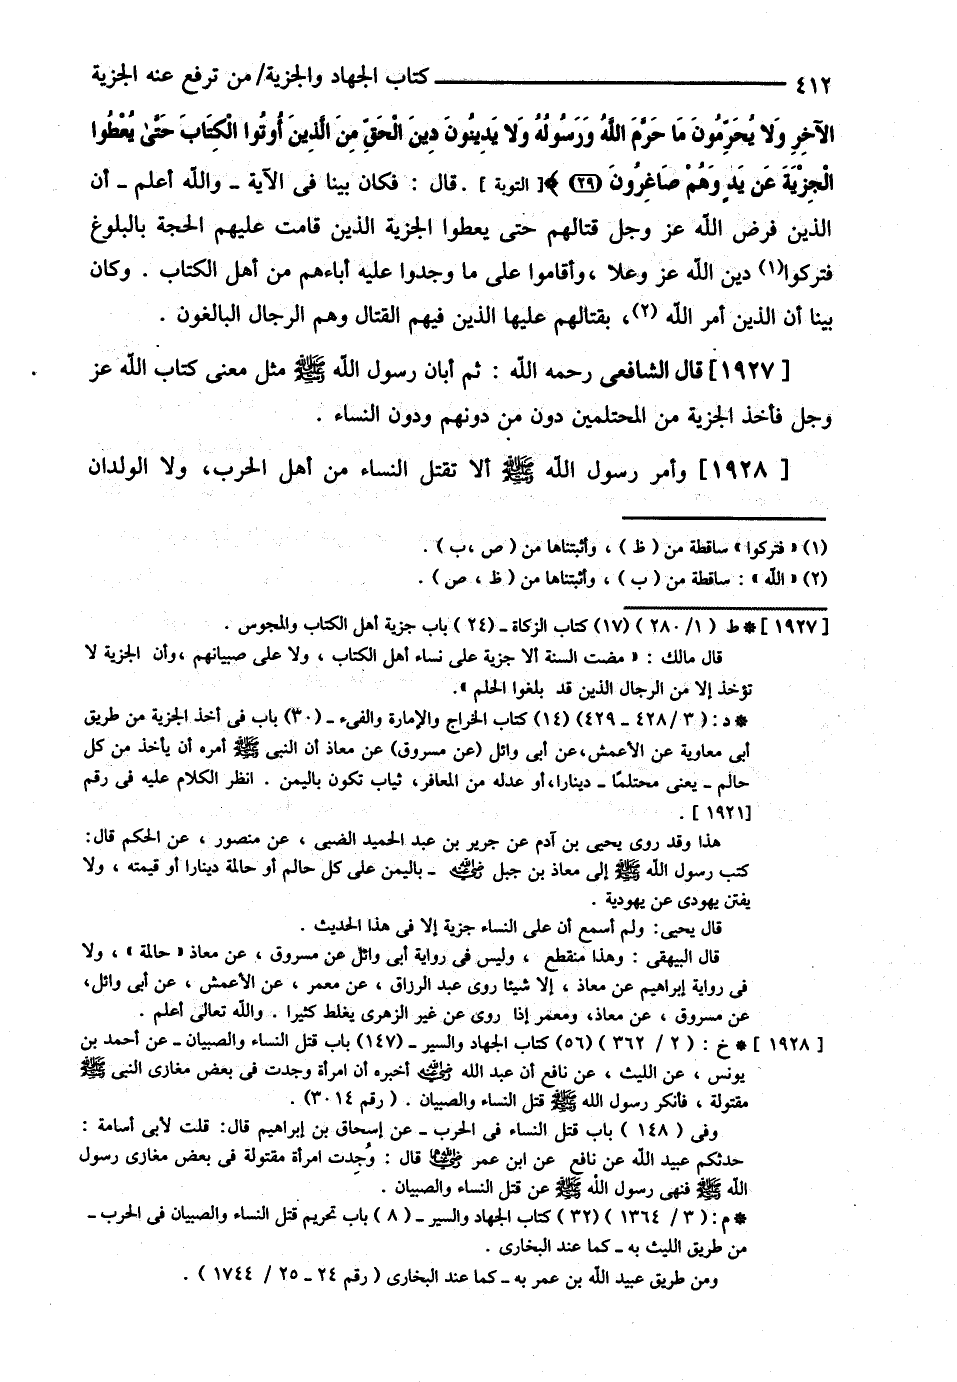 ٤١٢ كتاب الجهاد والجزية/ من ترفع عنه الجزية
الآخِرِ وَلا يُحَرِّمُونَ مَا حَرَّمَ اللَّهُ وَرَسُولُهُ وَلا يَدِينُونَ دِينَ الْحَقِّ مِنَ الَّذِينَ أُوتُوا الْكِتَابَ حَتَّىٰ يُعْطُوا
الْجِزْيَةَ عَن يَدٍ وَهُمْ صَاغِرُونَ (٢٩) ﴾[ التوبة ] . قال : فكان بينا فى الآية ـ والله أعلم ـ أن
الذين فرض الله عز وجل قتالهم حتى يعطوا الجزية الذين قامت عليهم الحجة بالبلوغ
فتركوا(١) دين الله عز وعلا ،وأقاموا على ما وجدوا عليه أباءهم من أهل الكتاب . وكان
بينا أن الذين أمر الله (٢)، بقتالهم عليها الذين فيهم القتال وهم الرجال البالغون .
[ ١٩٢٧] قال الشافعى رحمه الله : ثم أبان رسول الله ﷺ مثل معنى كتاب الله عز
وجل فأخذ الجزية من المحتلمين دون من دونهم ودون النساء .
[ ١٩٢٨] وأمر رسول الله ﷺ ألا تقتل النساء من أهل الحرب، ولا الولدان
(١) « فتركوا » ساقطة من ( ظ ) ، وأثبتناها من ( ص ،ب ) .
(٢) « الله » : ساقطة من ( ب ) ، وأثبتناها من ( ظ ، ص ) .
[ ١٩٢٧ ] * ط ( ١/ ٢٨٠ ) (١٧) كتاب الزكاة ـ (٢٤ ) باب جزية أهل الكتاب والمجوس .
قال مالك : « مضت السنة ألا جزية على نساء أهل الكتاب ، ولا على صبيانهم ،وأن الجزية لا
تؤخذ إلا من الرجال الذين قد بلغوا الحلم ».
* د : ( ٣/ ٤٢٨ ـ ٤٢٩) (١٤) كتاب الخراج والإمارة والفىء ـ (٣٠) باب فى أخذ الجزية من طريق
أبى معاوية عن الأعمش،عن أبى وائل (عن مسروق) عن معاذ أن النبى ﷺ أمره أن يأخذ من كل
حالم ـ يعنى محتلمًا ـ دينارا،أو عدله من المعافر، ثياب تكون باليمن . انظر الكلام عليه فى رقم
[١٩٢١ ] .
هذا وقد روى يحيى بن آدم عن جرير بن عبد الحميد الضبى ، عن منصور ، عن الحكم قال:
كتب رسول الله ﷺ إلى معاذ بن جبل رضي الله عنه ـ باليمن على كل حالم أو حالمة دينارا أو قيمته ، ولا
يفتن يهودى عن يهودية .
قال يحيى: ولم أسمع أن على النساء جزية إلا فى هذا الحديث .
قال البيهقى : وهذا منقطع ، وليس فى رواية أبى وائل عن مسروق ، عن معاذ « حالمة » ، ولا
فى رواية إبراهيم عن معاذ ، إلا شيئا روى عبد الرزاق ، عن معمر ، عن الأعمش ، عن أبى وائل،
عن مسروق ، عن معاذ، ومعمر إذا روى عن غير الزهرى يغلط كثيرا . والله تعالى أعلم .
[ ١٩٢٨ ] * خ : ( ٢ / ٣٦٢ ) (٥٦) كتاب الجهاد والسير ـ (١٤٧) باب قتل النساء والصبيان ـ عن أحمد بن
يونس ، عن الليث ، عن نافع أن عبد الله رضي الله عنه أخبره أن امرأة وجدت فى بعض مغازى النبى ﷺ
مقتولة ، فأنكر رسول الله ﷺ قتل النساء والصبيان . ( رقم ٣٠١٤) .
وفى ( ١٤٨ ) باب قتل النساء فى الحرب ـ عن إسحاق بن إبراهيم قال: قلت لأبى أسامة :
حدثكم عبيد الله عن نافع عن ابن عمر رضي الله عنهما قال : وُجدت امرأة مقتولة فى بعض مغازى رسول
الله ﷺ فنهى رسول الله ﷺ عن قتل النساء والصبيان .
* م : ( ٣ / ١٣٦٤ ) (٣٢ ) كتاب الجهاد والسير ـ ( ٨ ) باب تحريم قتل النساء والصبيان فى الحرب ـ
من طريق الليث به ـ كما عند البخارى .
ومن طريق عبيد الله بن عمر به ـ كما عند البخارى ( رقم ٢٤ ـ ٢٥ / ١٧٤٤ ) .